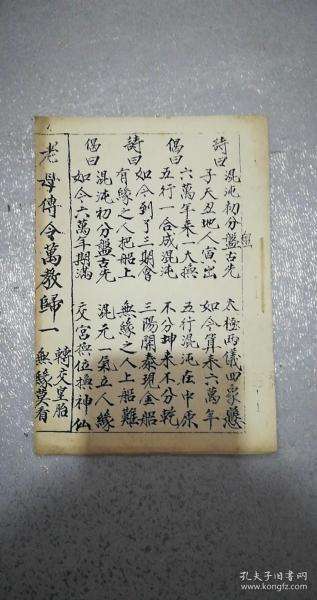 詩曰 混沌初分盤古先 太極兩儀四象懸
子天丑地人寅出 如今算来六萬年
偈曰 六萬年来一大換 五行混沌在中原
五行一合成混沌 不分坤来不分乾
詩曰 如今到了三期會 三陽開泰現金船
有緣之人把船上 無緣之人上船難
偈曰 混沌初分盤古先 混元一氣五人緣
如今六萬年期滿 交宮換位換神仙
老學傳令萬教歸一 轉交皇胎
無緣莫看
孔夫子旧书网
kongfz.com